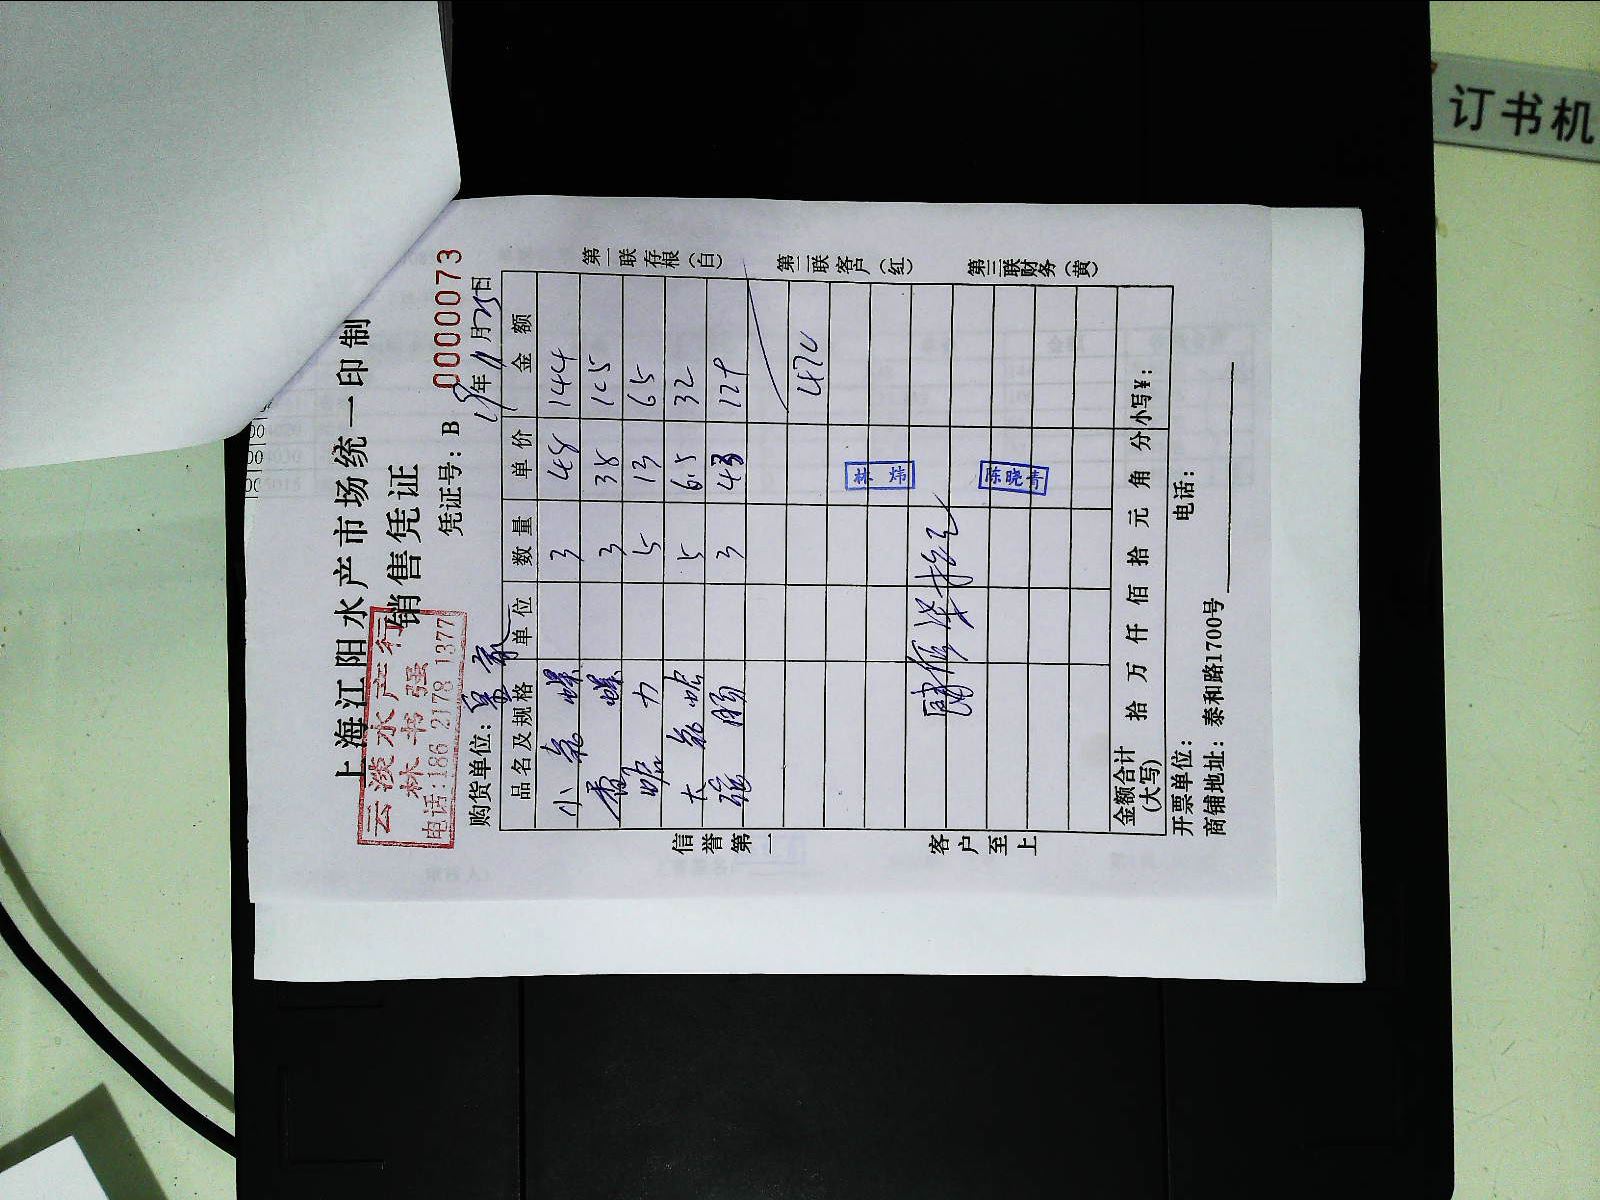 订书机
上海江阳水产市场统一印制
销售凭证
云淡水产行
林书强
电话:186 2178 1377
凭证号: B 0000073
购货单位:
年 11 月 25 日
品名及规格 单位 数量 单价 金额
小 螺 3 48 144
香螺 3 35 105
蛤 5 13 65
大 蛤 5 6.5 32
3 43 129
474
林炜
陈晓青
金额合计(大写) 拾 万 仟 佰 拾 元 角 分 小写¥:
开票单位: 电话:
商铺地址: 泰和路1700号
信誉第一
客户至上
第一联存根(白)
第二联客户(红)
第三联财务(黄)